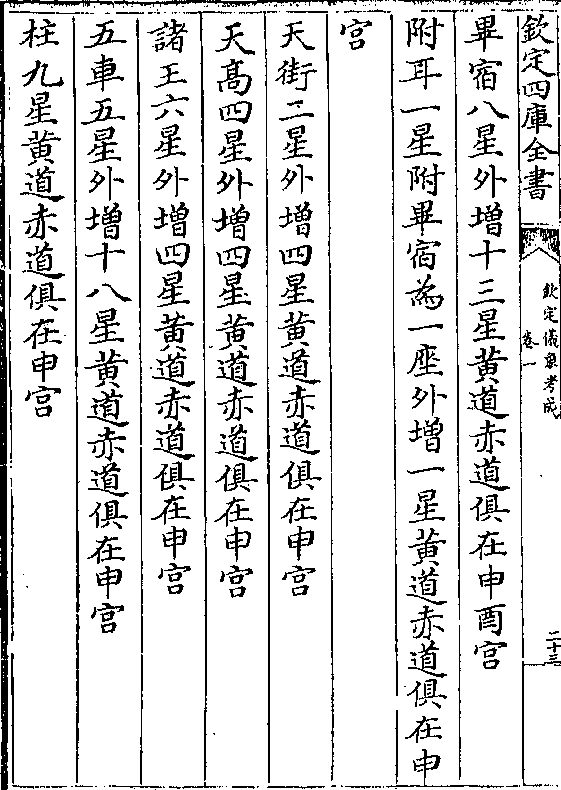 欽定四庫全書
欽定儀象考成
卷一
二十三
畢宿八星外增十三星黃道赤道俱在申酉宮
附耳一星附畢宿為一座外增一星黃道赤道俱在申
宮
天街二星外增四星黃道赤道俱在申宮
天高四星外增四星黃道赤道俱在申宮
諸王六星外增四星黃道赤道俱在申宮
五車五星外增十八星黃道赤道俱在申宮
柱九星黃道赤道俱在申宮